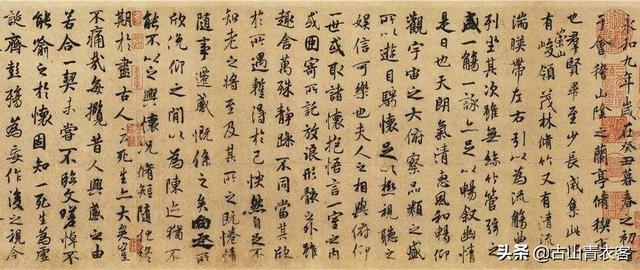 永和九年歲在癸丑暮春之初
于會稽山陰之蘭亭脩稧
也群賢畢至少長咸集此
有崇山峻領茂林脩竹又有清
湍暎帶左右引以為流觴
列坐其次雖無絲竹管弦
盛一觴一詠亦足以暢敘幽情
是日也天朗氣清惠風和暢仰
觀宇宙之大俯察品類之盛
所以遊目騁懷足以極視聽之
娛信可樂也夫人之相與俯仰
一世或取諸懷抱悟言一室之內
或因寄所託放浪形骸之外雖
趣舍萬殊靜躁不同當其欣
於所遇暫得於己怏然自足不
知老之將至及其所之既惓情
隨事遷感慨係之矣向之所
欣俛仰之間以為陳迹猶不
能不以之興懷況脩短隨化終
期於盡古人云死生亦大矣豈
不痛哉每攬昔人興感之由
若合一契未嘗不臨文嗟悼不
能喻之於懷固知一死生為虛
誕齊彭殤為妄作後之視今
头条@古山青衣客